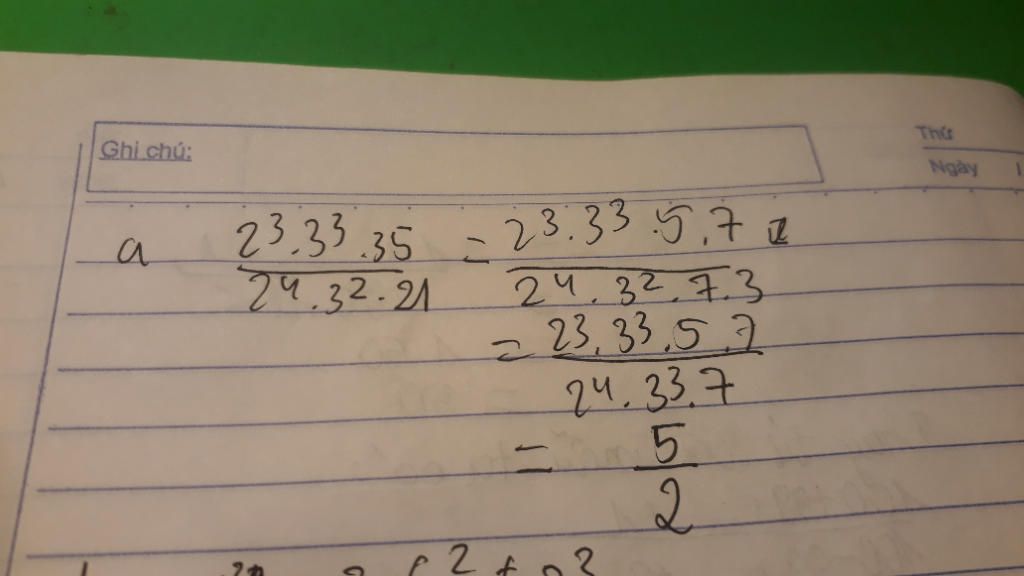 Ghi chú:
Thứ
Ngày
a 2³.3³.35 / 2⁴.3².21 = 2³.3³.5.7 / 2⁴.3².7.3
= 2³.3³.5.7 / 2⁴.3³.7
= 5 / 2